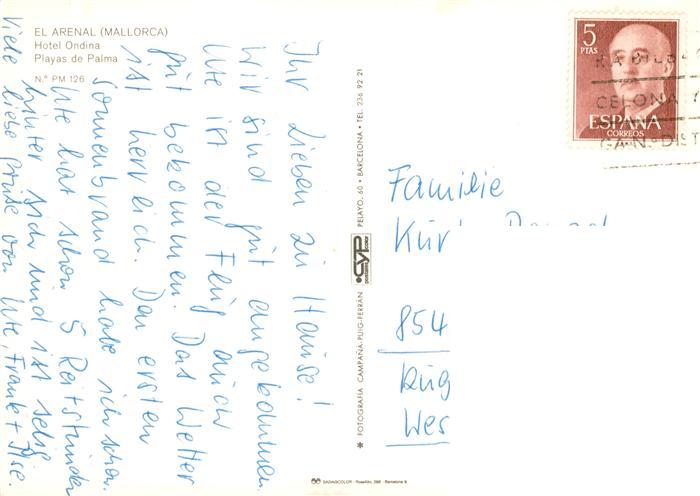 EL ARENAL (MALLORCA)
Hotel Ondina
Playas de Palma
N.º PM 126
Ihr Lieben zu Hause!
Wir sind gut angekommen.
Ute ist der Flug auch
gut bekommen. Das Wetter
ist herrlich. Den ersten
Sonnenbrand habe ich schon.
Ute hat schon 5 Reitstunden
hinter sich und ist selig
Viele liebe Grüße von Ute, Frank +
FOTOGRAFIA CAMPAÑA-PUIG-FERRÁN
CYP
postales color
PELAYO, 60 • BARCELONA • TEL. 236 92 21
5
PTAS
ESPAÑA
CORREOS
CELONA
Familie
Kur
854
Wes
SADAGCOLOR - Rosellón, 298 - Barcelona